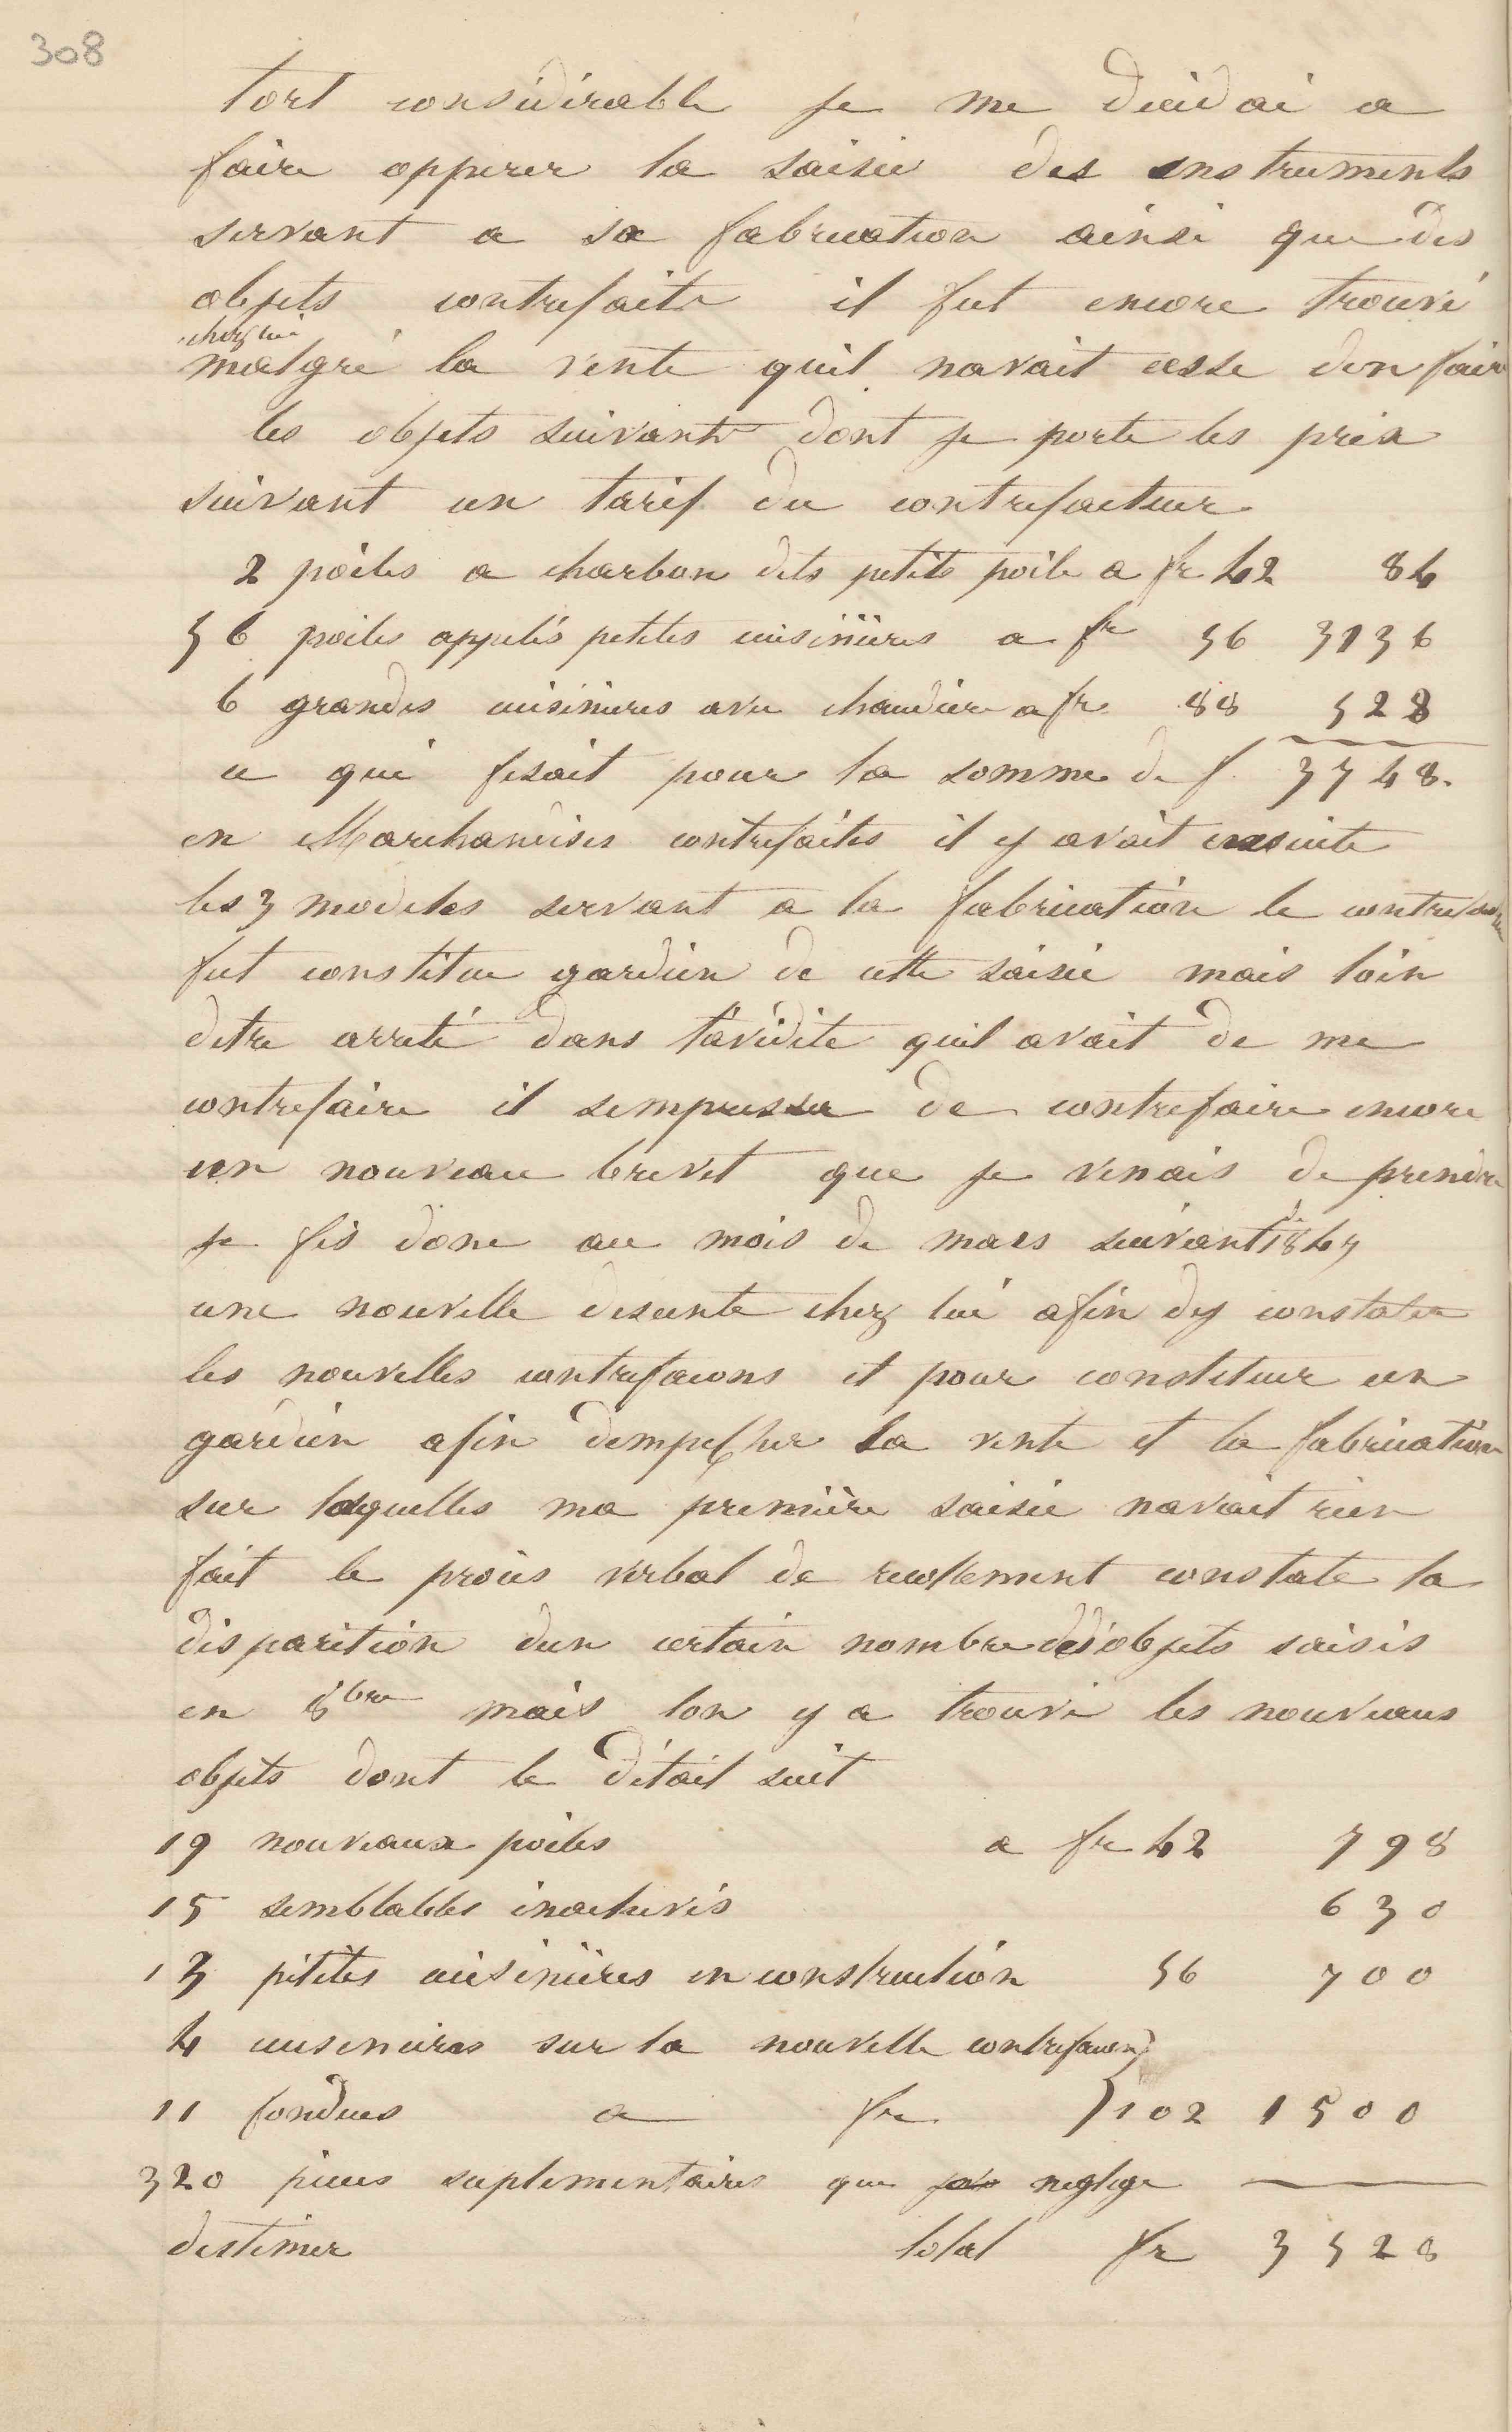 308
tort considirable je me decidai a
faire opperer la saisie des instruments
servant a sa fabrication ainsi que des
objets contrefaits il fut encore trouvé
chez lui
malgré la vente quil navait cesse den faire
les objets suivants dont je porte les prix
suivant un tarif du contrefacteur
2 poëles a charbon dits petits poële a fr 42 84
56 poëles appelés petites cuisinières a fr 56 3136
6 grandes cuisinieres avec chaudiere a fr 88 528
ce qui fesait pour la somme de f 3748.
en Marchandises contrefaites il y avait ensuite
les 3 modeles servant a la fabrication le contrefacteur
fut constitue gardien de cette saisie mais loin
detre arreté dans l'avidite quil avait de me
contrefaire il sempressa de contrefaire encore
un nouveau brevet que je venais de prendre
je fis donc au mois de mars suivant 1847
une nouvelle descente chez lui afin dy constater
les nouvelles contrefacons et pour constituer un
gardien afin dempecher la vente et la fabrication
sur lesquelles ma première saisie navait rien
fait le procès verbal de recollement constate la
disparition dun certain nombre des objets saisis
en 8bre mais lon y a trouvé les nouveaux
objets dont le détail suit
19 nouveaux poëles a fr 42 798
15 semblables inachevés 630
13 petites cuisinières en construction 56 700
4 cuisinieres sur la nouvelle contrefacon }
11 fondues a fr } 102 1500
320 pieces suplementaires que neglige
destimer total fr 3528